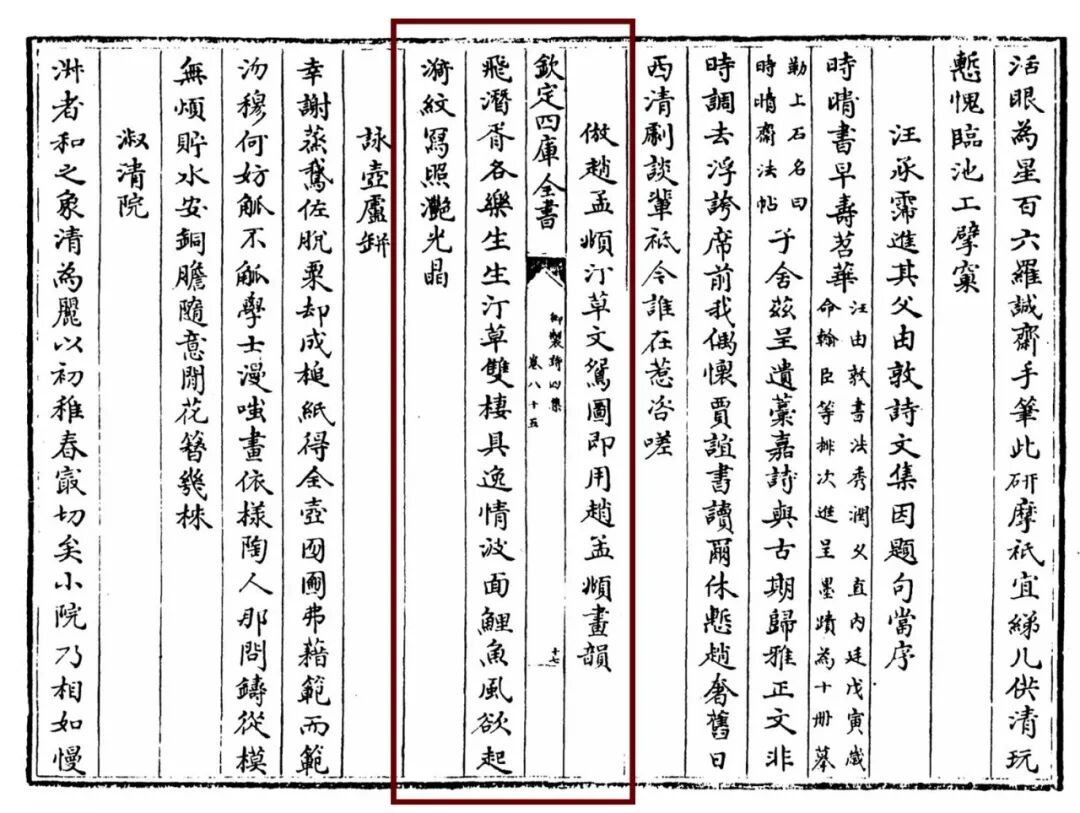 活眼為星百六羅誠齋手筆此研摩祗宜綈几供清玩
慙愧臨池工擘窠
汪承霈進其父由敦詩文集因題句當序
時晴書早壽苕華汪由敦書法秀潤又直内廷戊寅歲命翰臣等排次進呈墨蹟為十冊摹
勒上石名曰時晴齋法帖子舍兹呈遺藁嘉詩與古期歸雅正文非
時調去浮誇席前我偶懷賈誼書讀爾休慙趙奢舊日
西清劘談輩祗今誰在惹咨嗟
倣趙孟頫汀草文鴛圖即用趙孟頫畫韻
欽定四庫全書
御製詩四集
卷八十五
十七
飛潛胥各樂生生汀草雙棲具逸情波面鯉魚風欲起
漪紋寫照灔光晶
詠壺盧缾
幸謝蒸鵞佐脫粟却成槌紙得全壺囫圇弗藉範而範
沕穆何妨觚不觚學士漫嗤畫依樣陶人那問鑄從模
無煩貯水安銅膽隨意閒花簪幾株
淑清院
淋者和之象清為麗以初稚春㝡切矣小院乃相如慢